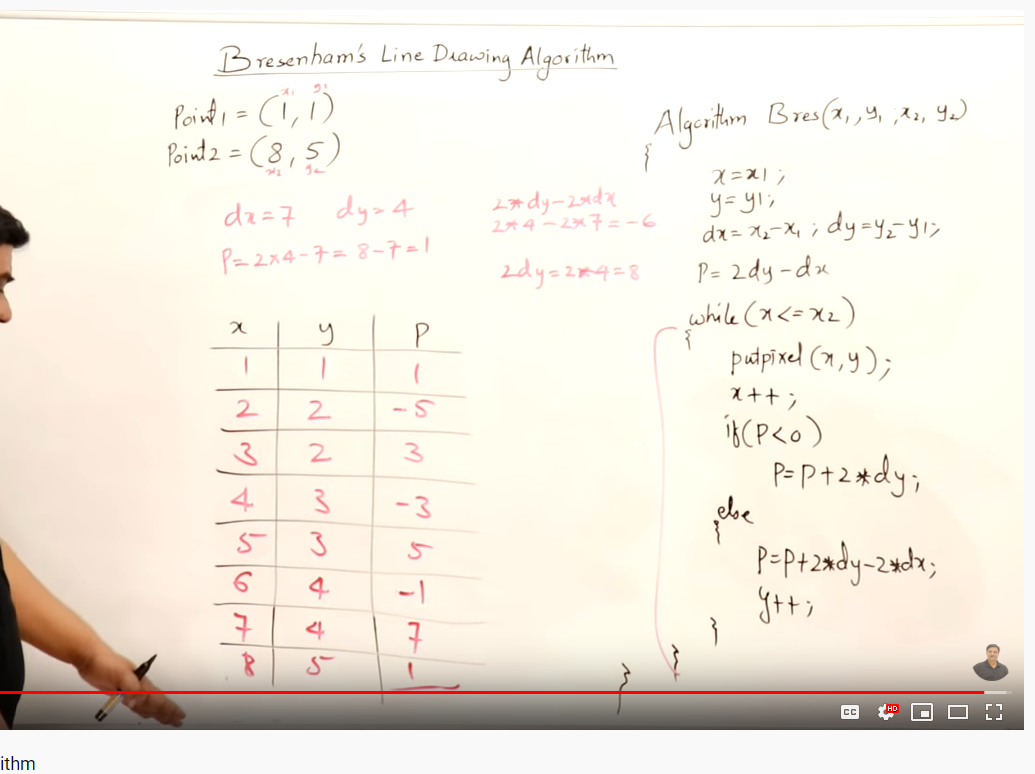 Bresenham's Line Drawing Algorithm
x1 y1
Point1 = (1, 1)
Point2 = (8, 5)
x2 y2
dx=7 dy=4
P=2*4-7= 8-7=1
2*dy-2*dx
2*4-2*7=-6
2dy=2*4=8
x y P
1 1 1
2 2 -5
3 2 3
4 3 -3
5 3 5
6 4 -1
7 4 7
8 5 1
Algorithm Bres(x1, y1, x2, y2)
{
x=x1;
y=y1;
dx=x2-x1; dy=y2-y1;
P=2dy-dx
while(x<=x2)
{
putpixel(x,y);
x++;
if(P<0)
P=P+2*dy;
else
{
P=P+2*dy-2*dx;
y++;
}
}
}
CC
HD
ithm